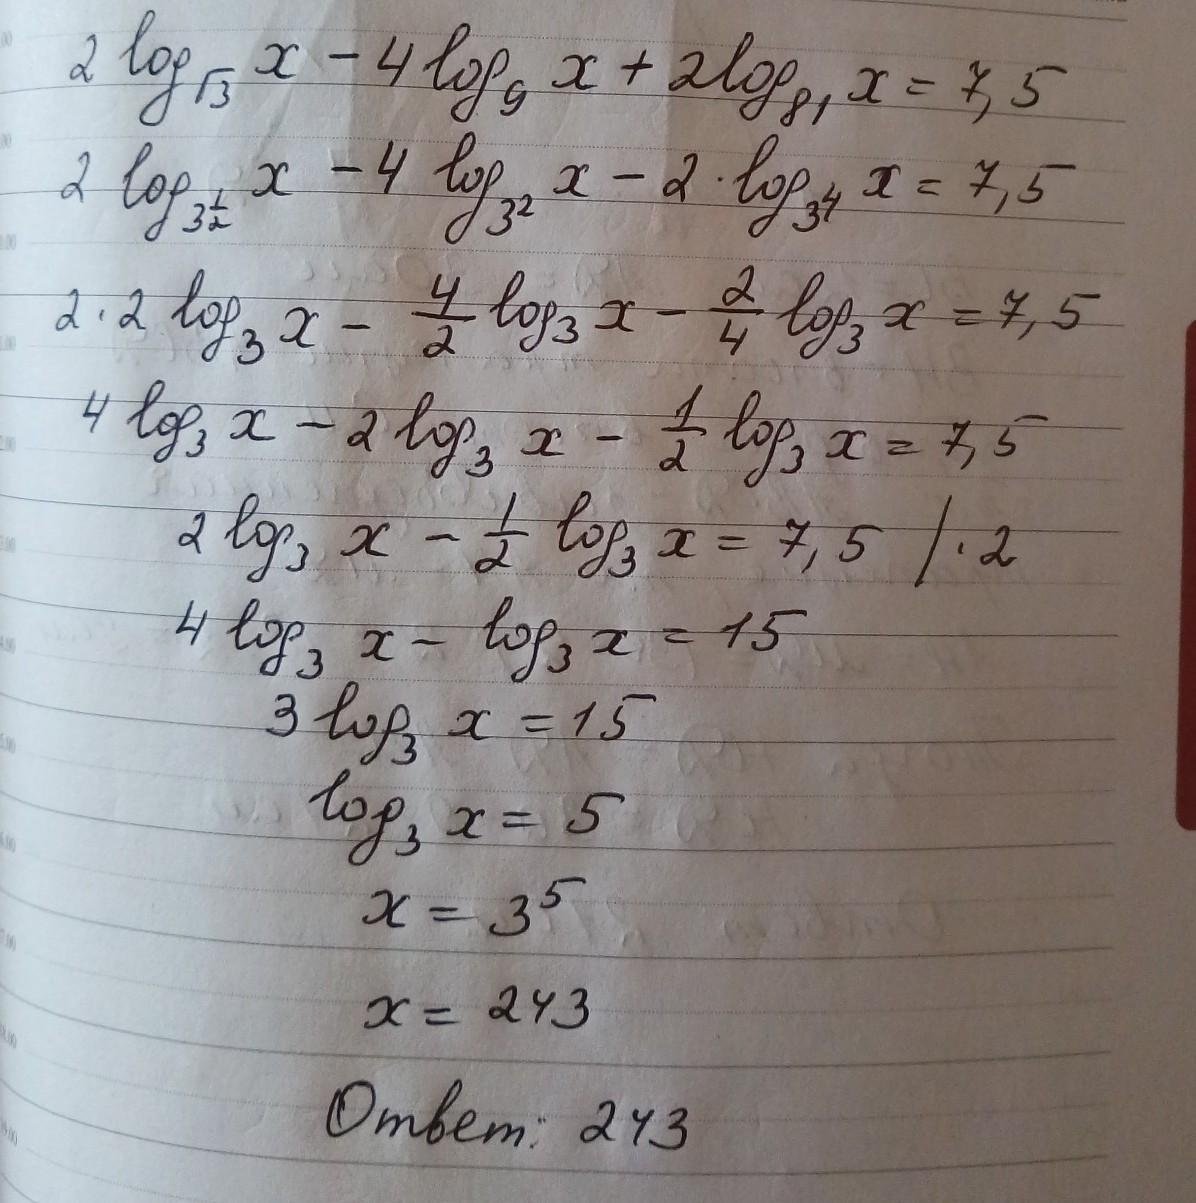 2 log_√3 x − 4 log_9 x + 2 log_81 x = 7,5
2 log_3^(1/2) x − 4 log_3^2 x − 2 · log_3^4 x = 7,5
2 · 2 log_3 x − 4/2 log_3 x − 2/4 log_3 x = 7,5
4 log_3 x − 2 log_3 x − 1/2 log_3 x = 7,5
2 log_3 x − 1/2 log_3 x = 7,5 / · 2
4 log_3 x − log_3 x = 15
3 log_3 x = 15
log_3 x = 5
x = 3^5
x = 243
Ответ: 243